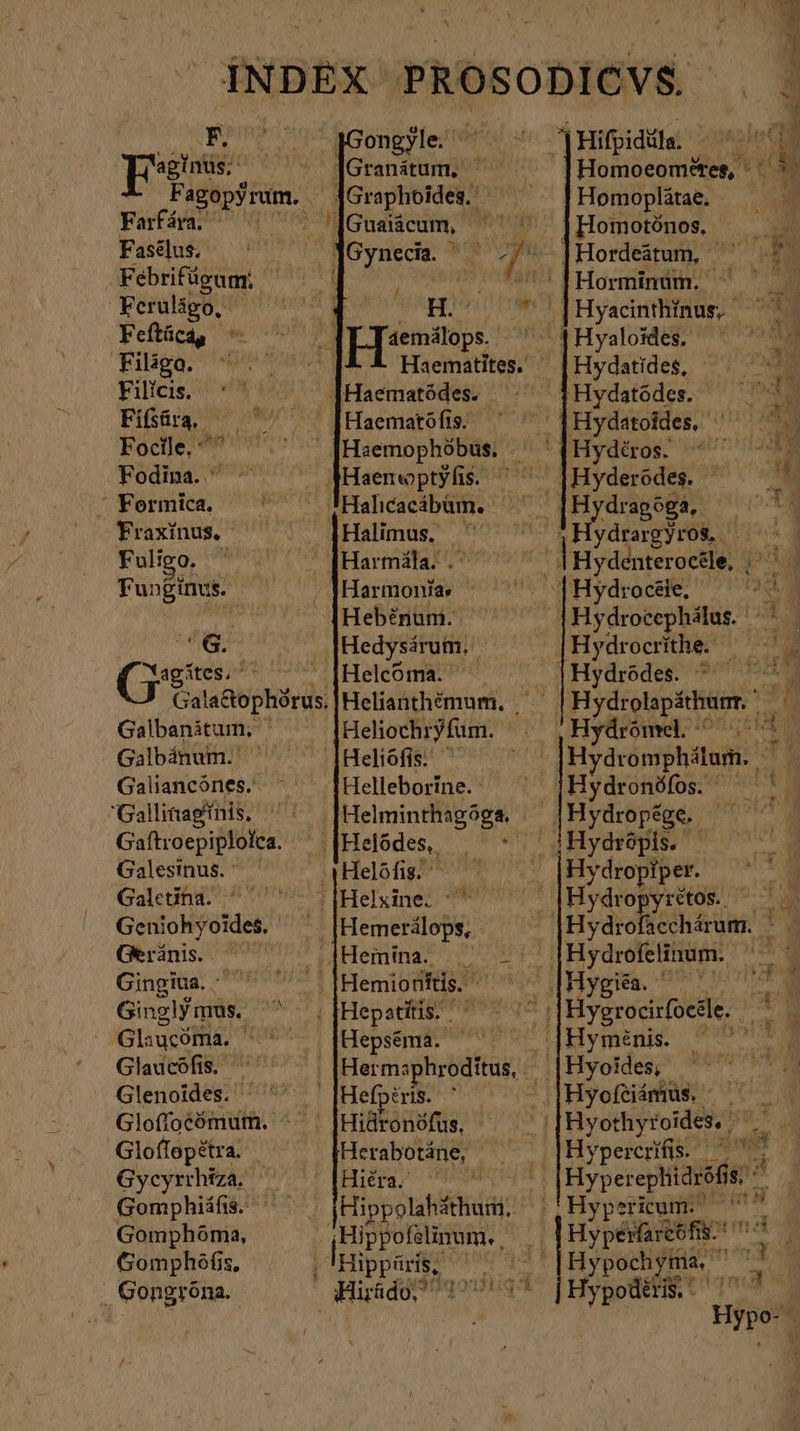 INDEX PROSODICVS.
F.
Fagĭnus.
Fagopȳrum.
Farfăra.
Fasēlus.
Febrifŭgum;
Ferulāgo,
Feſtūca,
Filāgo.
Filĭcis.
Fiſsūra,
Focĭle,
Fodīna.
Formīca,
Fraxĭnus,
Fulīgo.
Fungĭnus.
G.
Gagātes,
Galactophŏrus.
Galbanātum,
Galbănum.
Galiancŏnes.
Gallinagĭnis,
Gaſtroepiploĭca.
Galesĭnus.
Galetīna.
Geniohyoīdes.
Gerănis.
Gingīua.
Ginglȳmus.
Glaucōma.
Glaucōſis.
Glenoīdes.
Gloſſocŏmum.
Gloſſopētra.
Gycyrrhīza.
Gomphiāſis.
Gomphōma,
Gomphōſis,
Gongrōna.
Gongȳle.
Granātum,
Graphoīdes.
Guaiăcum,
Gynecīa.
H.
Haemălops.
Haematītes.
Haematōdes.
Haematōſis.
Haemophŏbus.
Haemoptȳſis.
Halicacăbum.
Halĭmus,
Harmăla.
Harmonīa.
Hebĕnum.
Hedysărum,
Helcōma.
Helianthĕmum,
Heliochrȳſum.
Heliōſis.
Helleborīne.
Helminthagōga,
Helōdes,
Helōſis.
Helxīne.
Hemerălops,
Hemīna.
Hemionītis.
Hepatītis.
Hepsēma.
Hermaphrodītus,
Heſpĕris.
Hidronŏſus,
Herabotăne,
Hiĕra.
Hippolapăthum,
Hippoſelīnum,
Hippūris,
Hirūdo,
Hiſpidŭla.
Homoeomĕres,
Homoplătae.
Homotŏnos,
Hordeātum,
Hormīnum.
Hyacinthĭnus,
Hyaloīdes.
Hydatīdes,
Hydatōdes.
Hydatoīdes,
Hydĕros.
Hyderōdes.
Hydragōga,
Hydrargȳros,
Hydenterocēle,
Hydrocēle,
Hydrocephălus.
Hydrocrīthe.
Hydrōdes.
Hydrolapăthum.
Hydrŏmel.
Hydromphălum.
Hydronŏſos.
Hydropēge.
Hydrōpis.
Hydropĭper.
Hydropyrĕtos.
Hydroſacchărum.
Hydroſelīnum.
Hygiēa.
Hygrocirſocēle.
Hymĕnis.
Hyoīdes,
Hyoſciămus,
Hyothyroīdes.
Hypercrĭſis.
Hyperephidrōſis,
Hyperĭcum.
Hyperſarcōſis.
Hypochȳma,
Hypodĕris.
Hypo-